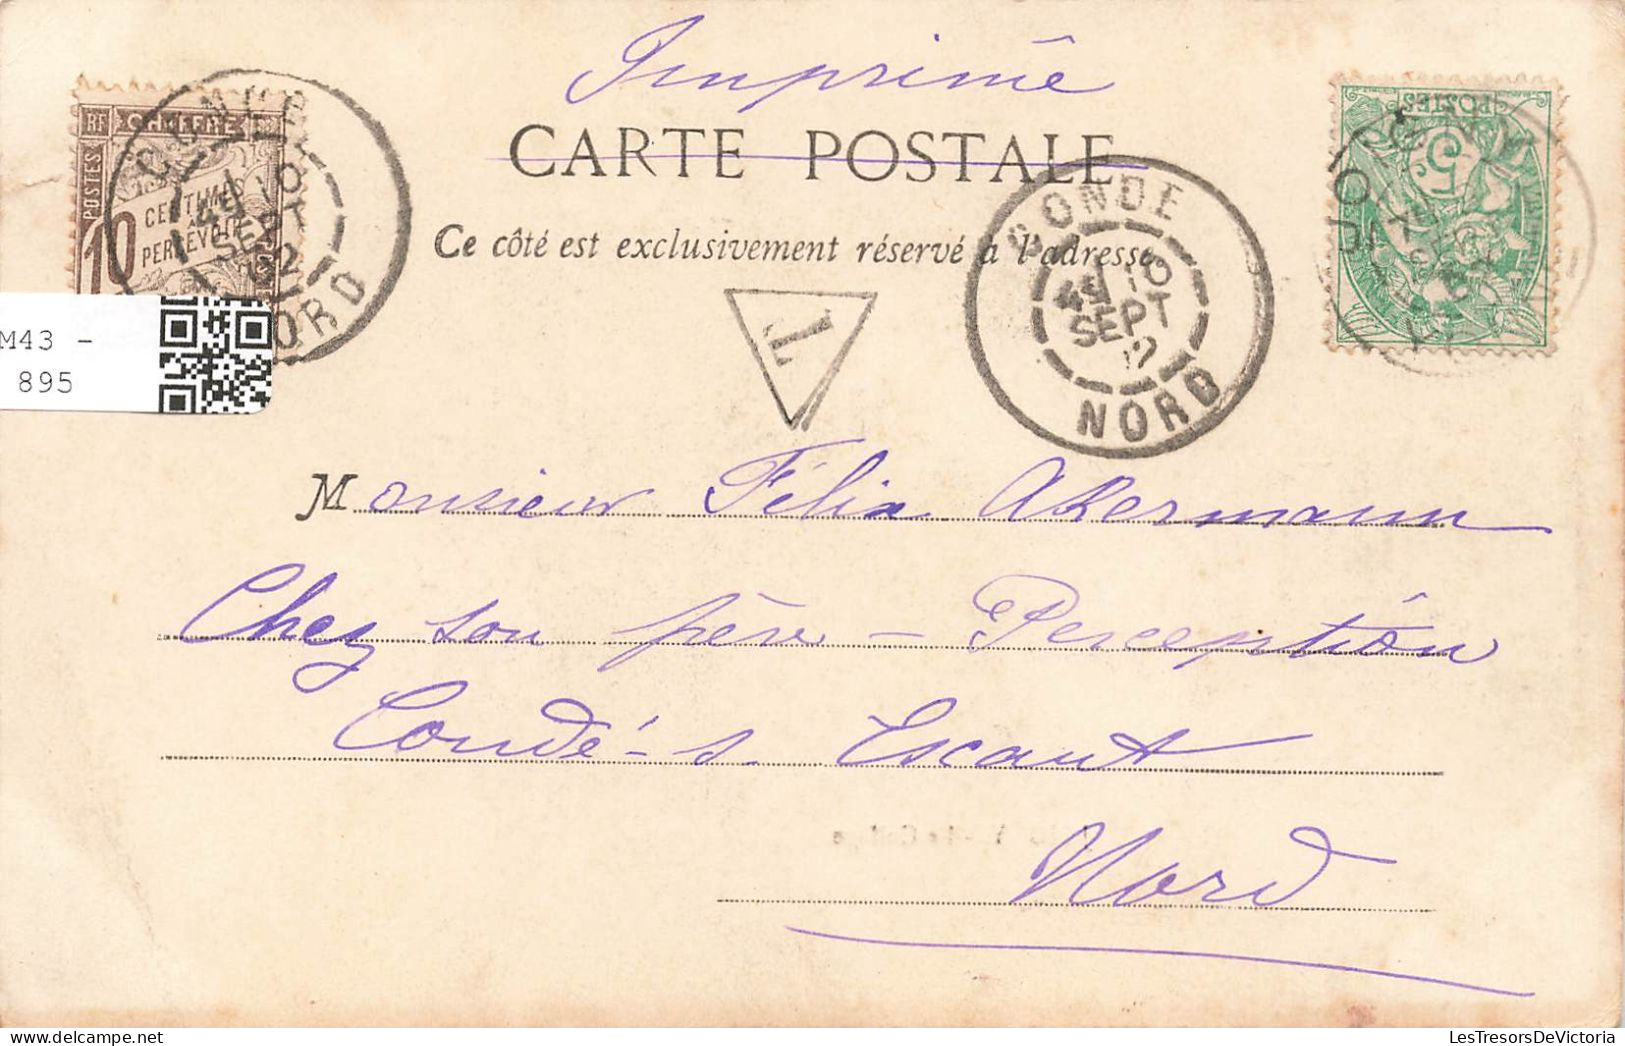 Imprimé
CARTE POSTALE
Ce côté est exclusivement réservé à l'adresse
RF CHIFFRE
POSTES
10 CENTIMES
À
PERCEVOIR
CONDE
10
SEPT
02
NORD
T
CONDE
10
SEPT
NORD
POSTES
5
JOIGNY
M43 -
895
Monsieur Félix Akermann
Chez son père - Perception
Condé-s Escaut
Nord
LesTresorsDeVictoria.com